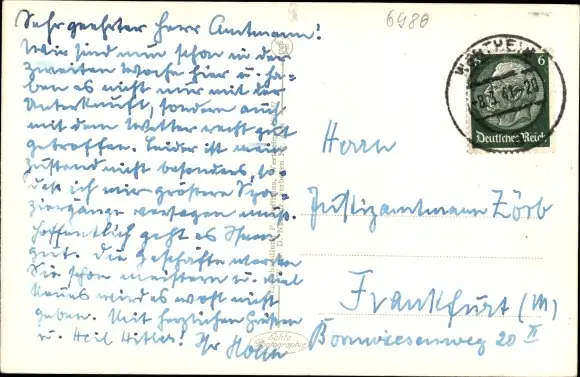 6980
Sehr geehrter Herr Amtmann!
Wir sind nun schon in der
zweiten Woche hier u. ha-
ben es nicht nur mit der
Unterkunft, sondern auch
mit dem Wetter recht gut
getroffen. Leider ist mein
Zustand nicht besonders, so-
daß ich mir größere Spa-
ziergänge versagen muß.
Hoffentlich geht es Ihnen
gut. Die Geschäfte werden
Sie schon meistern u. viel
Neues wird es wohl nicht
geben. Mit herzlichen Grüßen
u. Heil Hitler! Ihr
WERTHEIM
6
Deutsches Reich
Herrn
Justizamtmann Zörb
Frankfurt (M)
Bornwiesenweg 20 II
Echte
Photographie